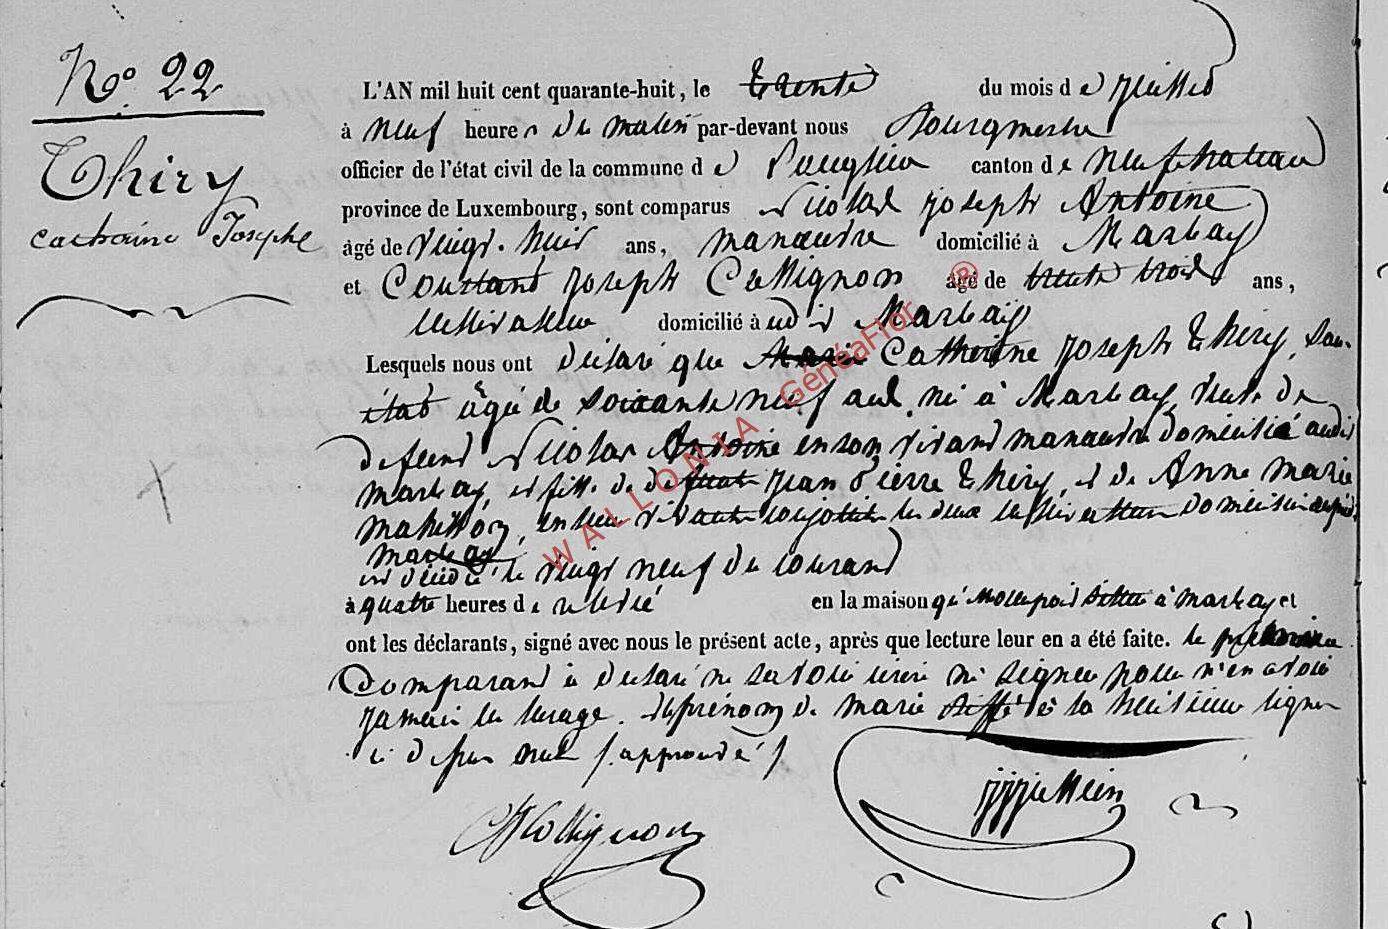 No. 22
Thiry
Catherine Josephe
L'AN mil huit cent quarante-huit, le trente du mois de juillet
à neuf heures du matin par-devant nous Bourgmestre
officier de l'état civil de la commune de canton de neufchateau
province de Luxembourg, sont comparus Nicolas joseph Antoine
âgé de vingt-huit ans, manœuvre domicilié à Marbay
et Constant joseph Collignon âgé de trente trois ans,
cultivateur domicilié à udit Marbay
Lesquels nous ont déclaré que Marie Catherine joseph Thiry, sans
état âgée de soixante neuf ans, né à Marbay, veuve de
defunt Nicolas Antoine en son vivant manœuvre domicilié audit
marbay, et fille de defunts jean Pierre Thiry, et de Anne marie
en leur vivant conjoints les deux cultivateurs domiciliés
marbay
est décédé le vingt neuf du courant
à quatre heures de relevé en la maison qu'il occupoit située à marbay et
ont les déclarants, signé avec nous le présent acte, après que lecture leur en a été faite. le premier
Comparant a déclaré ne savoir écrire ni signer pour n'en avoir
jamais eu l'usage. le prénom de marie biffé à la huitième ligne
ci dessus nul / approuvé /
Collignon
WALLONIA GénéaFlor ®